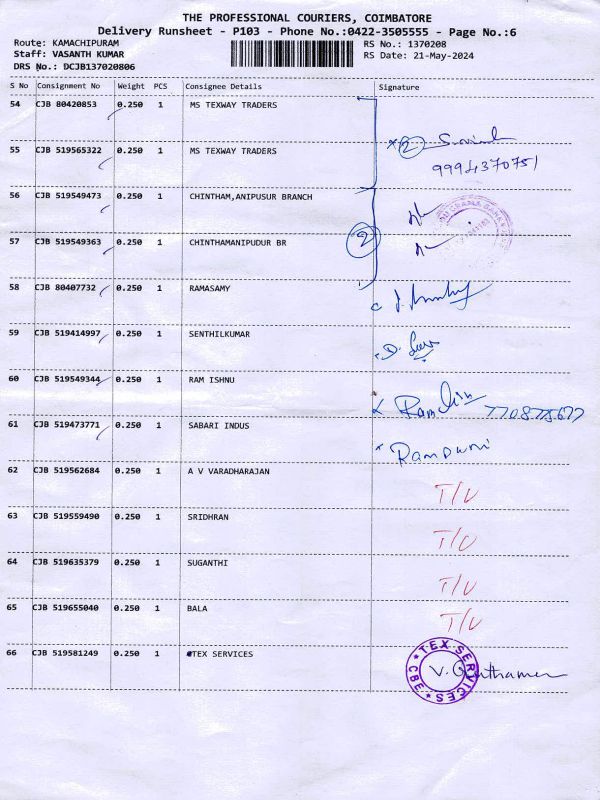 THE PROFESSIONAL COURIERS, COIMBATORE
Delivery Runsheet - P103 - Phone No.:0422-3505555 - Page No.:6
Route: KAMACHIPURAM RS No.: 1370208
Staff: VASANTH KUMAR RS Date: 21-May-2024
DRS No.: DCJB137020806
S No Consignment No Weight PCS Consignee Details Signature
54 CJB 80420853 0.250 1 MS TEXWAY TRADERS
2
55 CJB 519565322 0.250 1 MS TEXWAY TRADERS
9994370751
56 CJB 519549473 0.250 1 CHINTHAM,ANIPUSUR BRANCH
57 CJB 519549363 0.250 1 CHINTHAMANIPUDUR BR 2
58 CJB 80407732 0.250 1 RAMASAMY
59 CJB 519414997 0.250 1 SENTHILKUMAR
60 CJB 519549344 0.250 1 RAM ISHNU
61 CJB 519473771 0.250 1 SABARI INDUS
62 CJB 519562684 0.250 1 A V VARADHARAJAN
T/U
63 CJB 519559490 0.250 1 SRIDHRAN
T/U
64 CJB 519635379 0.250 1 SUGANTHI
T/U
65 CJB 519655040 0.250 1 BALA
T/U
66 CJB 519581249 0.250 1 TEX SERVICES
TEX SERVICES CBE